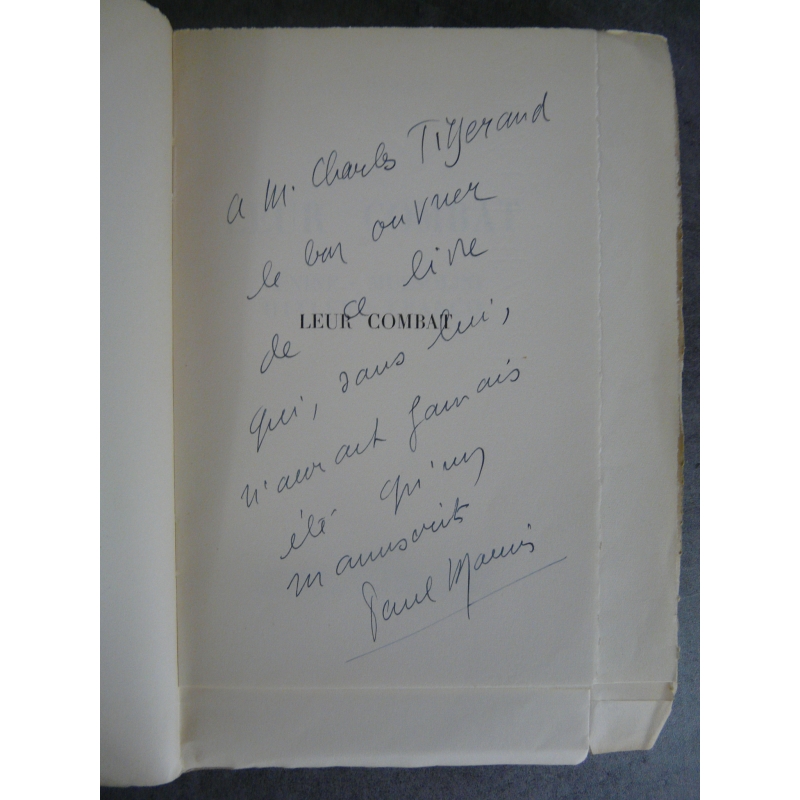 A M. Charles Tisserand
le bon ouvrier
de ce livre
LEUR COMBAT
qui, sans lui,
n'aurait jamais
été qu'un
manuscrit
Paul